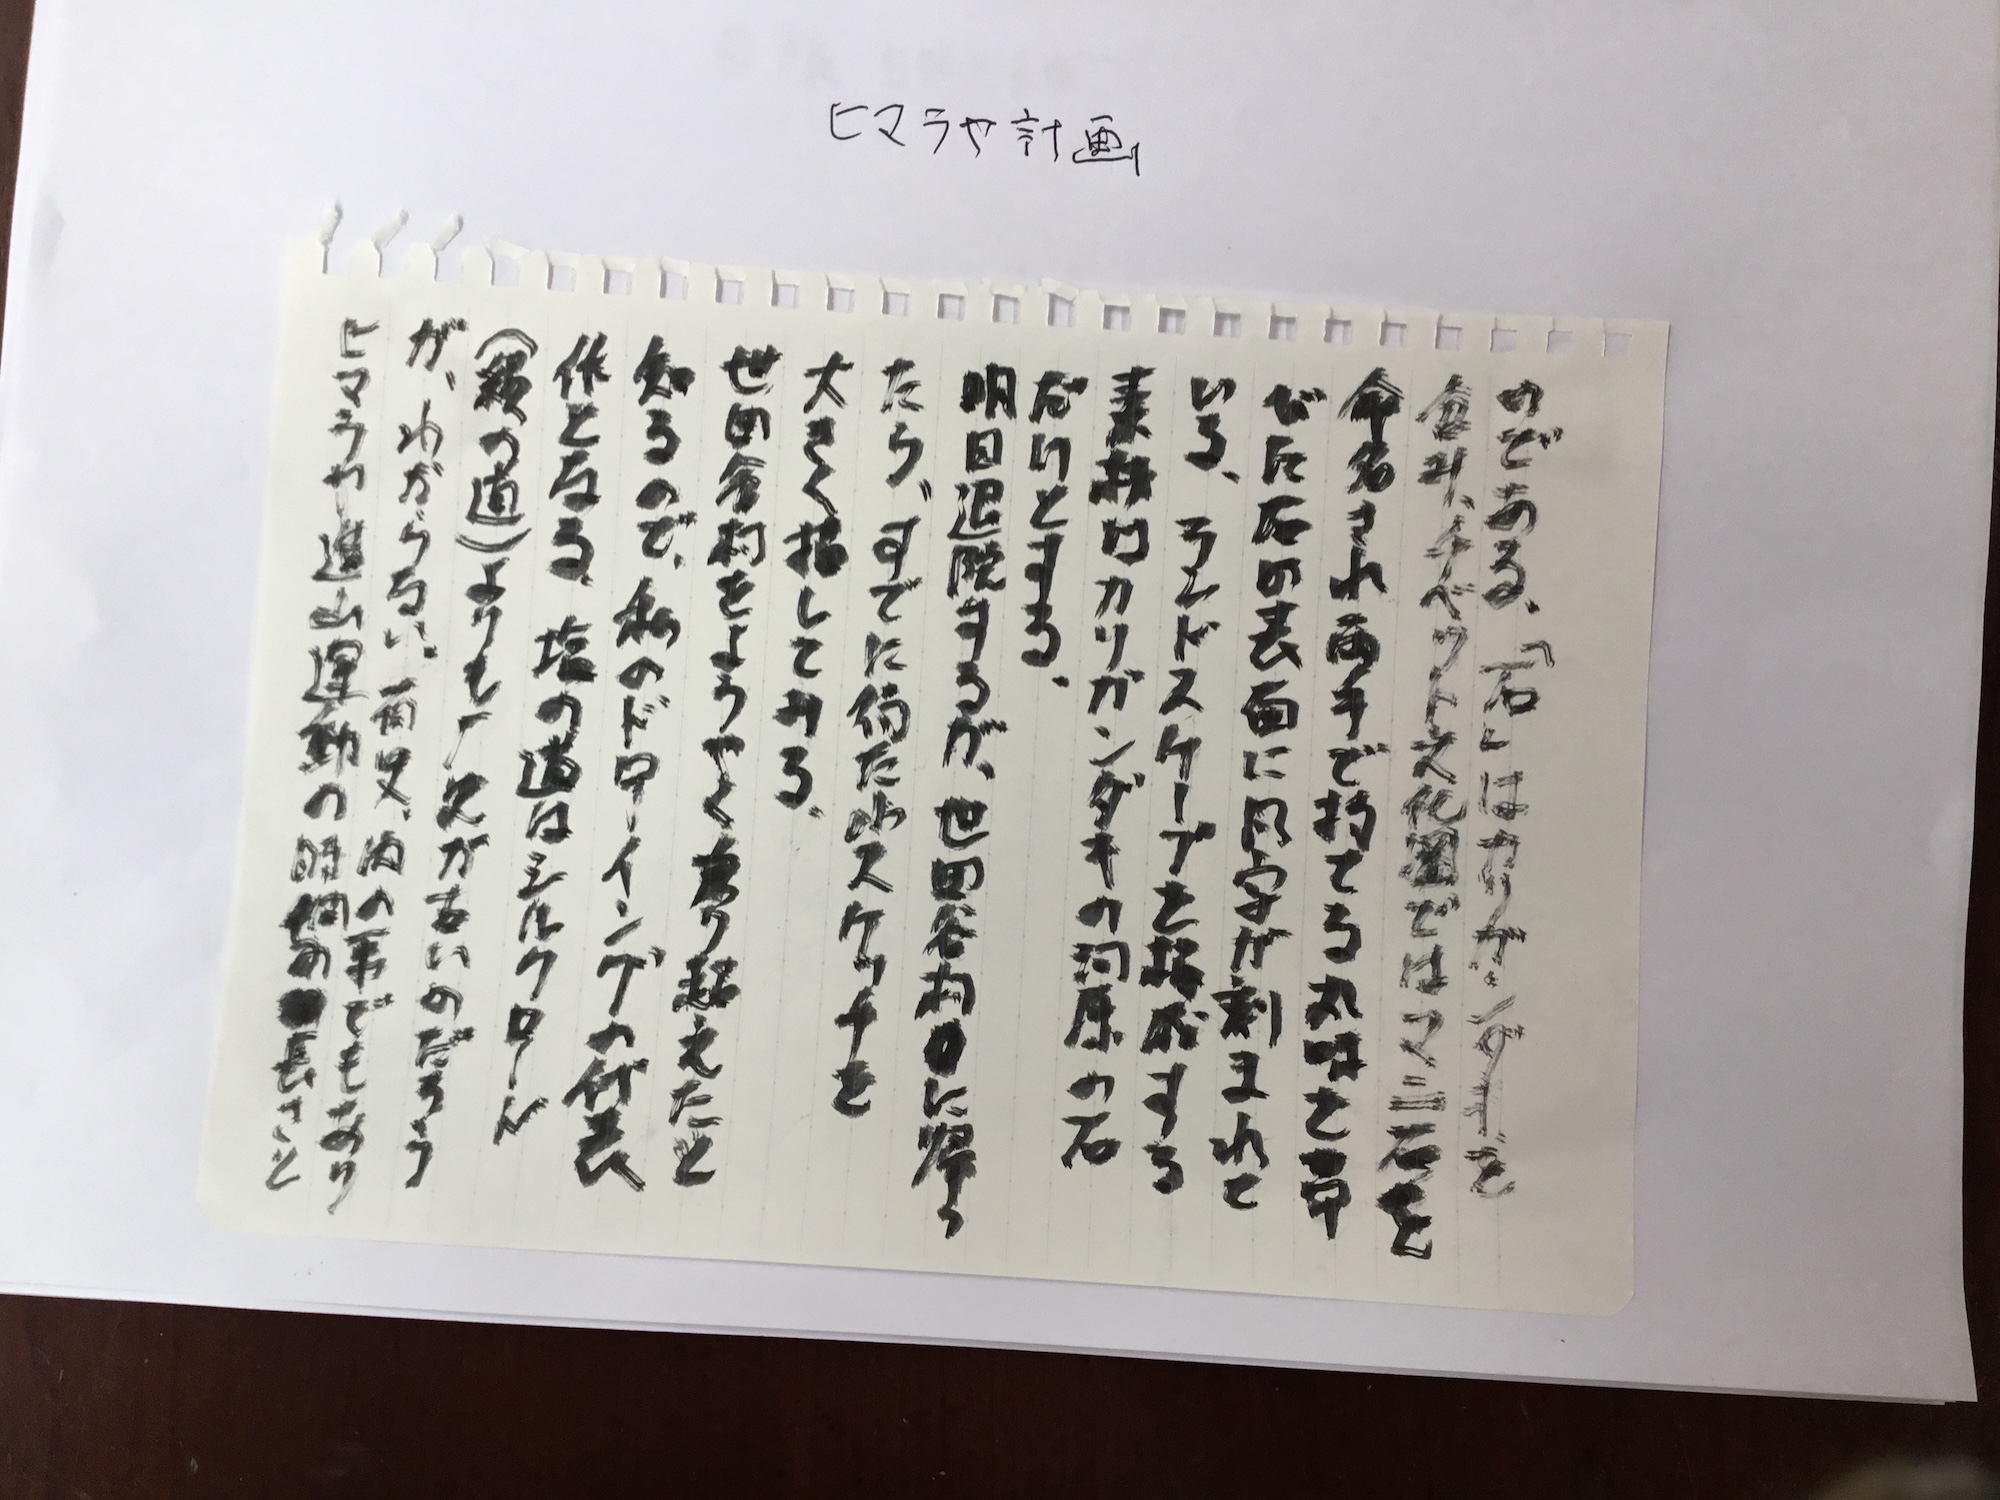 ヒマラヤ計画
のである、「石」はカリガンダーを
含み、チベット文化圏ではマニ石を
命名され両手で持てる丸味を帯
びた石の表面に凡字が刻まれて
いる、ランドスケープを描わする
素材はカリガンダキの河原の石
だけとする、
明日退院するが、世田谷村に帰っ
たら、すでに得た小スケッチを
大きく描してみる、
世田谷村をようやく乗り超えたと
知るので、私のドローイングの代表
作となる、塩の道はシルクロード
(絹の道)よりも歴史が古いのだろう
が、わからない、有史、内の事でもあり
ヒマラヤ造山運動の時間の長さと